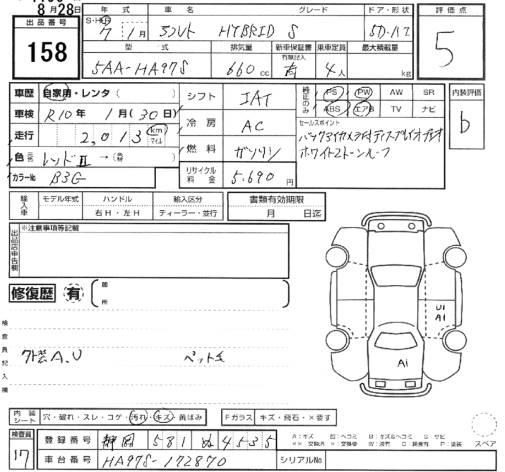 8月28日
出品番号 158
年式 車名 グレード ドア・形状
S・H・R 7 1月 アルト HYBRID S 5D・ハッチ
型式 排気量 新車保証書 乗車定員 最大積載量
記録簿入
5AA-HA97S 660cc 有 4人 kg
評価点 5
車歴 自家用・レンタ( )
車検 R10年 1月(30日)
走行 2,013 km マイル
色 レッドII →( )
カラーNo B3G
シフト IAT
冷房 AC
燃料 ガソリン
リサイクル料金 5,690円
純正のみ PS PW AW SR
ABS エアB TV ナビ
セールスポイント
バックアイカメラ付ディスプレイオーディオ
ホワイト2トーンルーフ
内装評価 b
輸入車 モデル年式 ハンドル 輸入区分
右H・左H ディーラー・並行
書類有効期限
月 日迄
出品店申告欄 ※注意事項等記載
修復歴 有 箇所
検査員記入欄
A.U ペット
U1
A1
A1
内装シート 穴・破れ・スレ・コゲ・汚れ・キズ・黄ばみ
Fガラス キズ・飛石・×要す
検査員 17
登録番号 静岡 581 ぬ 4535
車台番号 HA97S-172870
シリアルNo
スペア